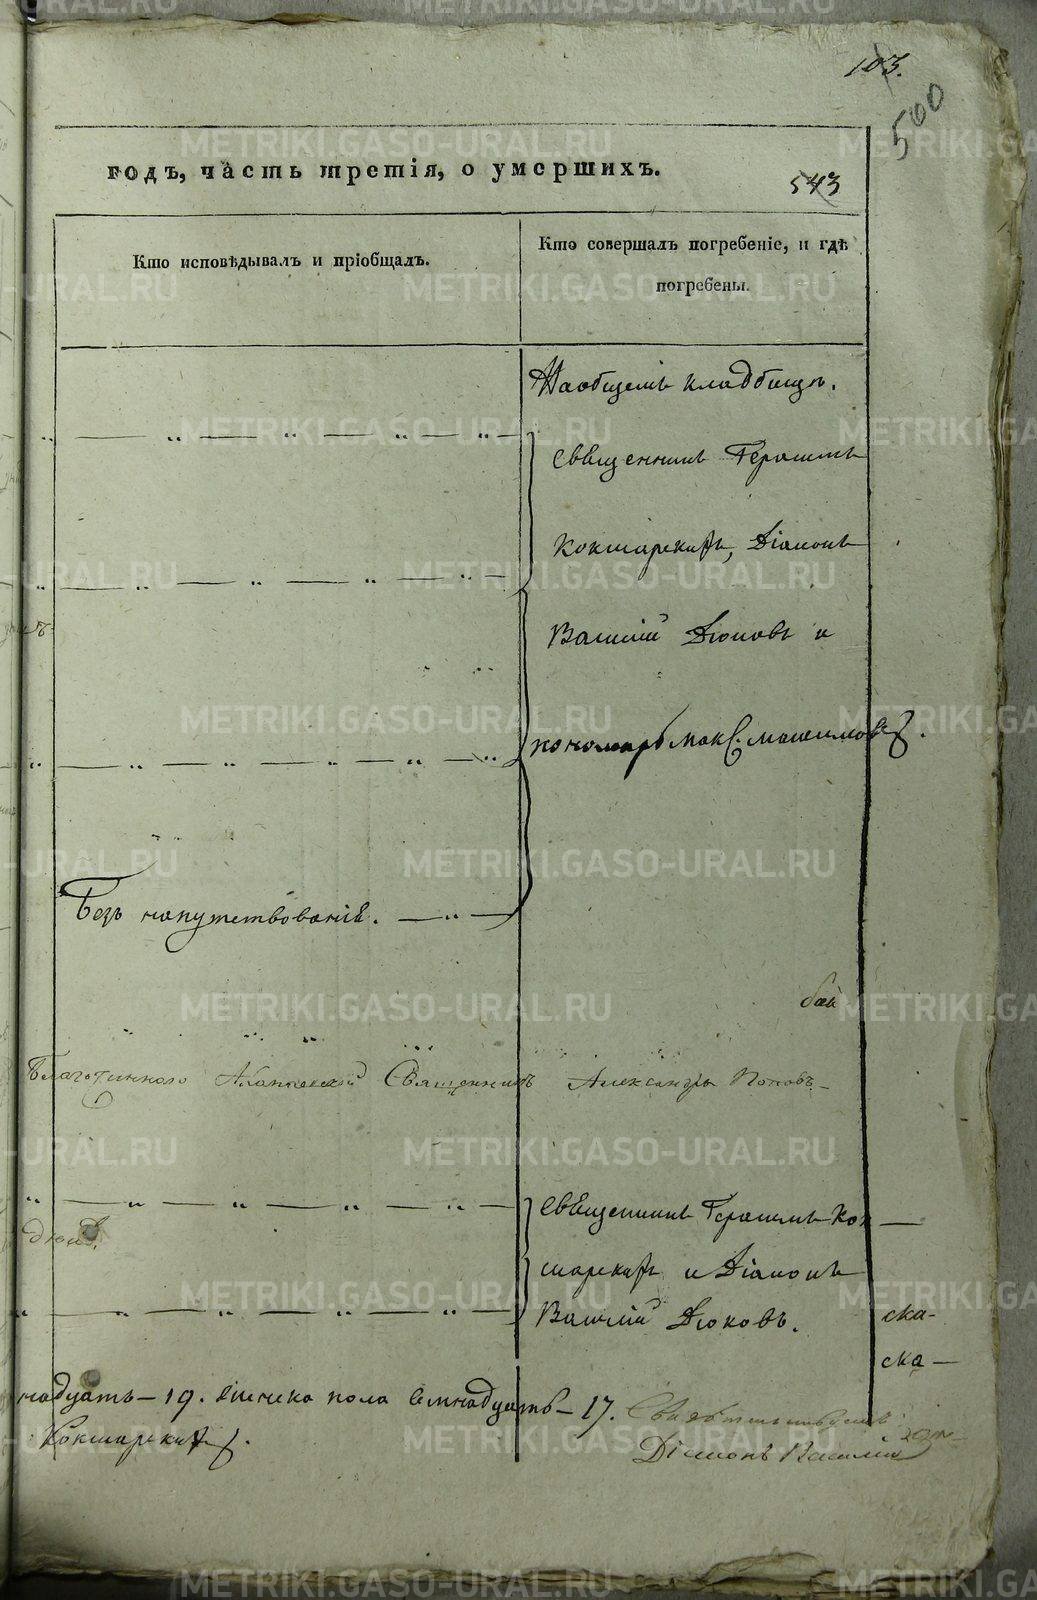 103.
500
годъ, часть третія, о умершихъ.
543
Кто исповѣдывалъ и пріобщалъ.
Кто совершалъ погребеніе, и гдѣ
погребены.
На общемъ кладбищѣ.
Священникъ Герасимъ
Кокшарскій, Діаконъ
Василій Дюковъ и
пономарь Макс. Максимовъ.
Безъ напутствованія.
Благочинного Священникъ Александръ Поповъ
Священникъ Герасимъ Кок
шарскій и Діаконъ
Василій Дюковъ.
ска-
ска-
надцать - 19. женска пола семнадцать - 17. Свидѣтельствуемъ
Кокшарскій.
Діаконъ Василій
METRIKI.GASO-URAL.RU